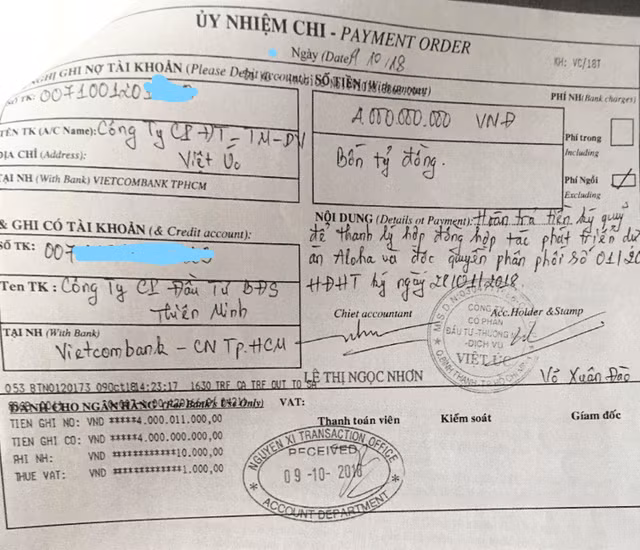 ỦY NHIỆM CHI - PAYMENT ORDER
Ngày (Date) 9/10/18
KH: VC/18T
NGHỊ GHI NỢ TÀI KHOẢN (Please Debit account):
SỐ TIỀN
PHÍ NH (Bank charges)
SỐ TK: 0071001201
4.000.000.000 VNĐ
Phí trong
Including
TÊN TK (A/C Name): Công Ty CP ĐT - TM - DV
Việt Úc
ĐỊA CHỈ (Address):
Bốn tỷ đồng.
TẠI NH (With Bank) VIETCOMBANK TPHCM
Phí Ngoài
Excluding
& GHI CÓ TÀI KHOẢN (& Credit account):
SỐ TK: 007
Tên TK : Công Ty CP Đầu Tư BĐS
Thiên Minh
TẠI NH (With Bank)
Vietcombank - CN Tp.HCM
NỘI DUNG (Details of Payment): Hoàn trả tiền ký quỹ
để thanh lý hợp đồng hợp tác phát triển dự
án Aloha và độc quyền phân phối số 01/20
HĐHT ký ngày 28/01/2018.
Chief accountant
Acc.Holder & Stamp
CÔNG TY
CỔ PHẦN
ĐẦU TƯ-THƯƠNG
-DỊCH VỤ
VIỆT ÚC
LÊ THỊ NGỌC NHƠN
Võ Xuân Đào
053 BTN0120173 09Oct18 14:23:17 1630 TRF CA TRF OUT TO SA
DÀNH CHO NGÂN HÀNG (For Bank's Use Only) VAT:
Thanh toán viên
Kiểm soát
Giám đốc
TIEN GHI NO: VND *****4.000.011.000,00
TIEN GHI CO: VND *****4.000.000.000,00
PHI NH: VND ************10.000,00
THUE VAT: VND *************1.000,00
NGUYEN XI TRANSACTION OFFICE
RECEIVED
09-10-2018
ACCOUNT DEPARTMENT